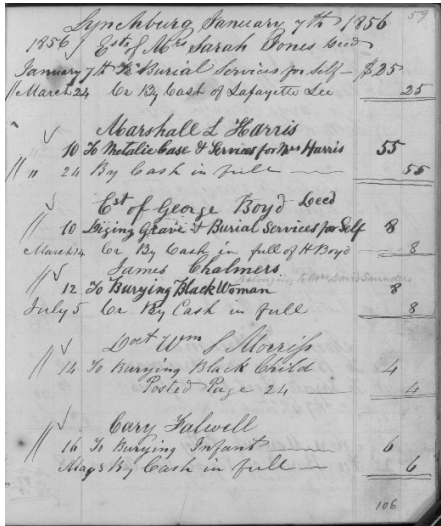 59
Lynchburg January 7th 1856
1856 Est of Mrs Sarah Jones Decd
January 7th To Burial Services for Self — $25
" March 24 Cr By Cash of Lafayette Lee 25
Marshall L Harris
10 To Metalic Case & Services for Mrs Harris 55
" " 24 By Cash in full — 55
Est of George Boyd Decd
10 Diging Grave & Burial Services for Self 8
March 24 Cr By Cash in full of H Boyd — 8
James Chalmers
belonging to Mrs David Saunders
" 12 To Burying Black Woman 8
July 5 Cr By Cash in full 8
Doct Wm S Morriss
" 14 To Burying Black Child 4
Posted Page 24 — 4
Cary Falwell
" 16 To Burying Infant — 6
May 3 By Cash in full — 6
106